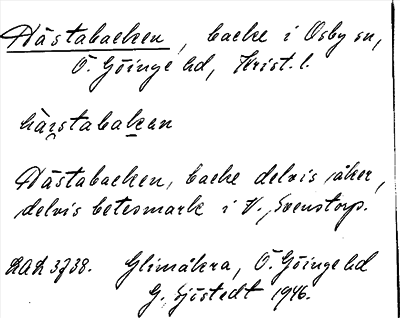 Hästabacken, backe i Osby sn,
Ö. Göinge hd, Krist. l.
hästabakan
Hästabacken, backe delvis åker,
delvis betesmark i V. Svenstorp.
Glimåkra, Ö. Göinge hd
G. Sjöstedt 1946.